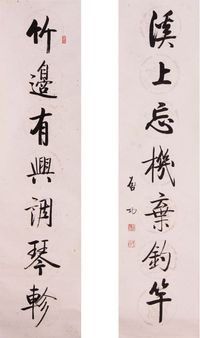 溪上忘機棄釣竿
启功
竹邊有興調琴軫